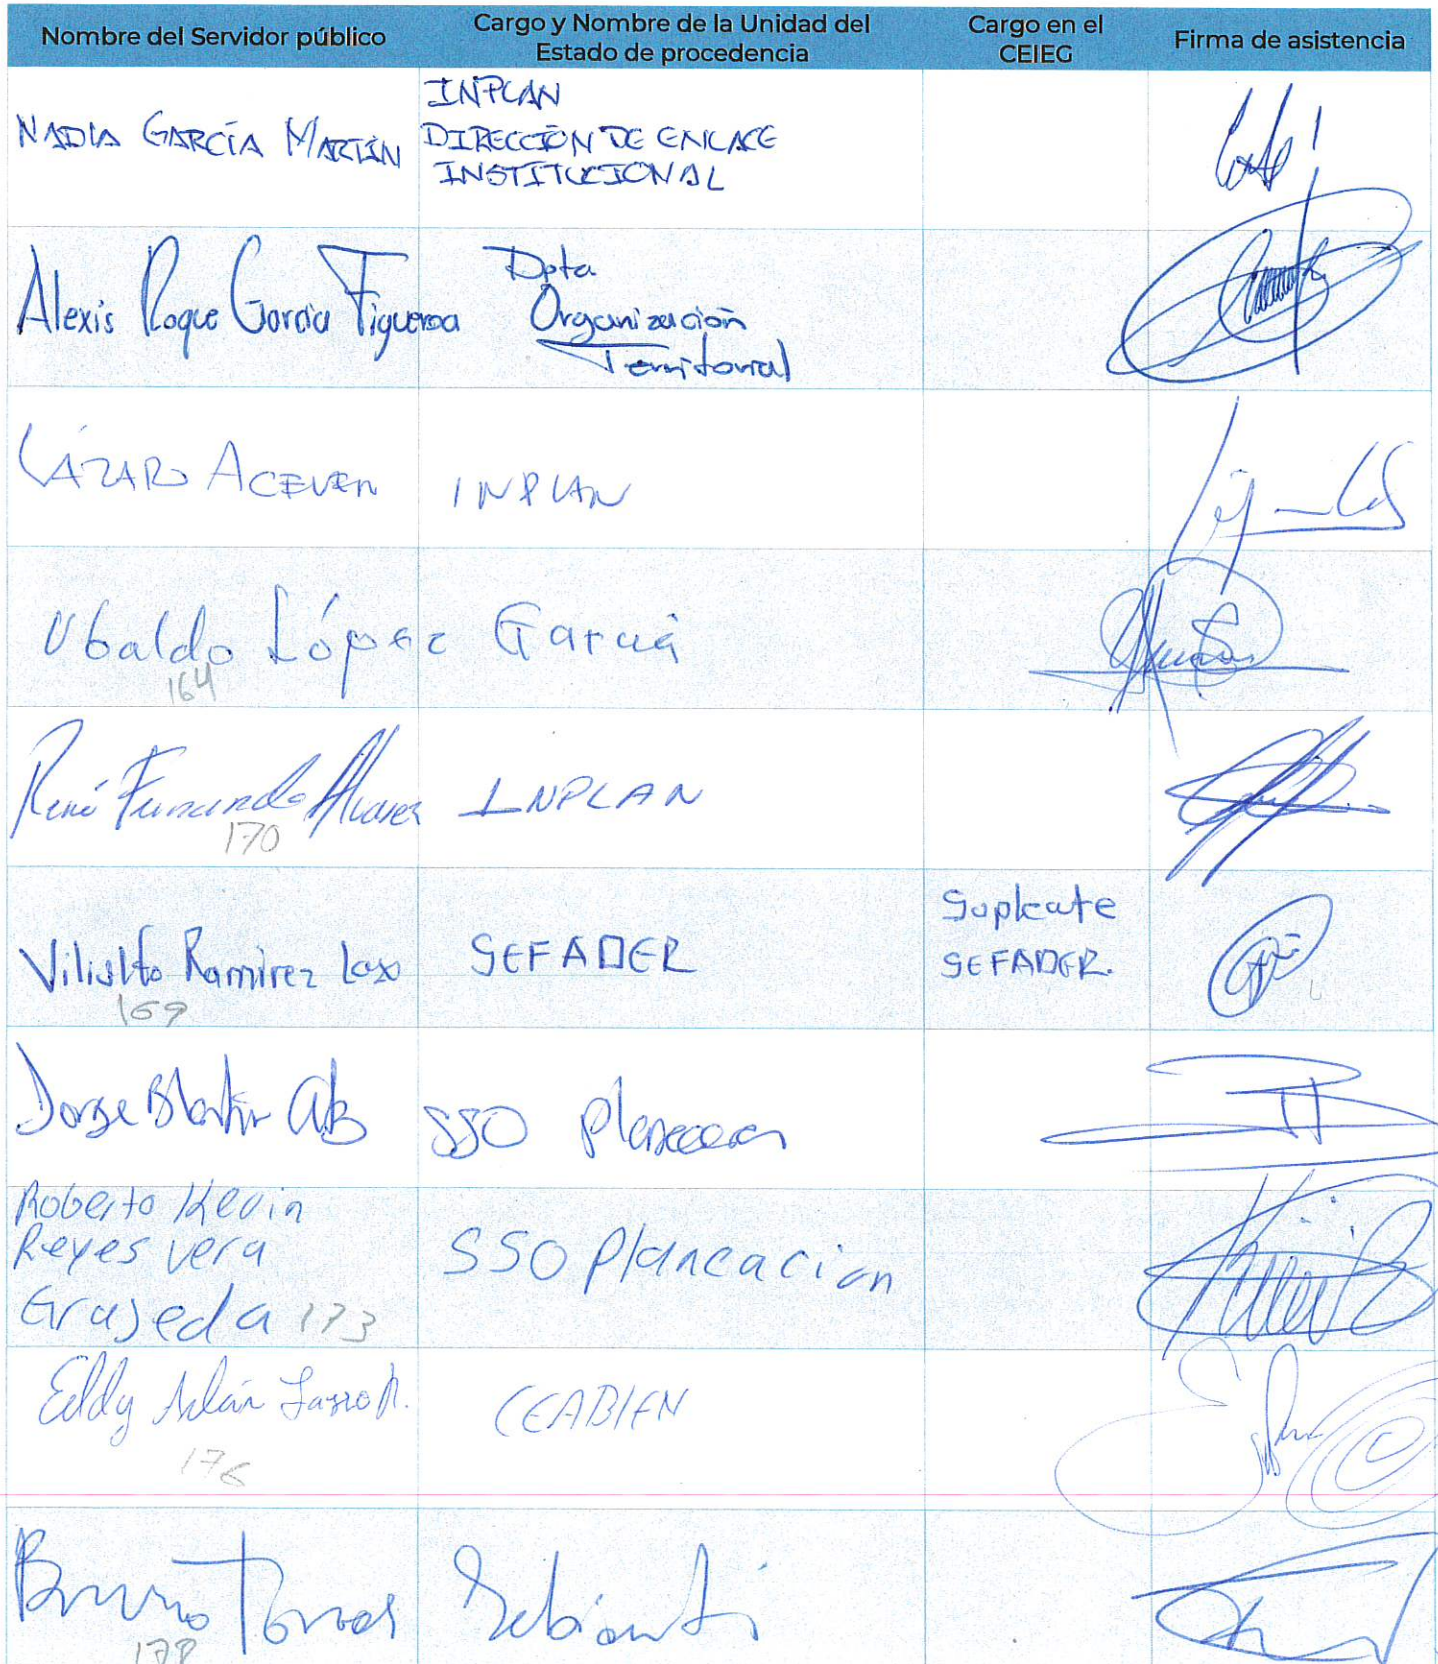 Nombre del Servidor público
Cargo y Nombre de la Unidad del
Estado de procedencia
Cargo en el
CEIEG
Firma de asistencia
NADIA GARCÍA MARTÍN
INPLAN
DIRECCIÓN DE ENLACE
INSTITUCIONAL
Alexis Roque García Figueroa
Dpta
Organización
Territorial
LÁZARO
INPLAN
Ubaldo López García
164
René Fernando Alvarez
INPLAN
170
Ramirez
SEFADER
Suplente
SEFADER.
169
Jorge
SSO Planeacion
Roberto Kevin
Reyes vera
Grajeda 173
SSO Planeacion
Eddy
CEABIEN
176
Bruno Torres
178